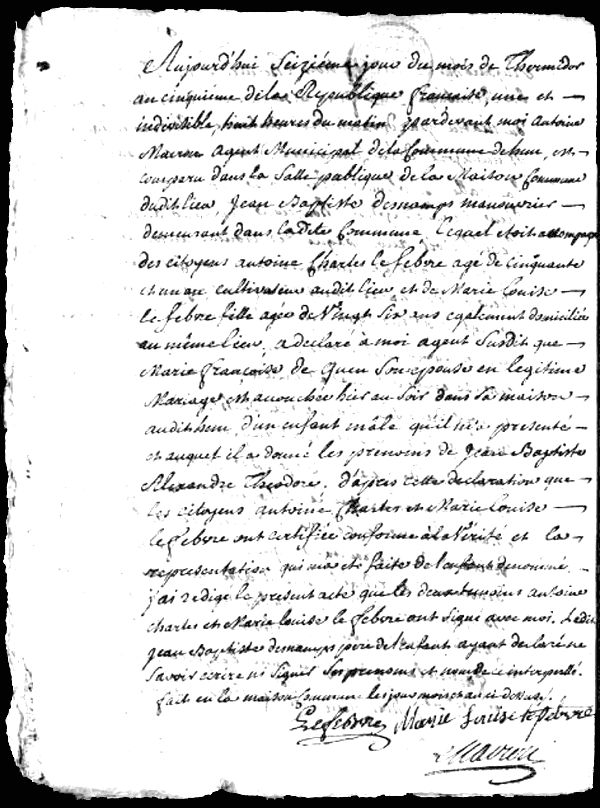 Aujourd'hui Seiziéme jour du mois de Thermidor
an cinquieme de la Republique française une et
indivisible, huit heures du matin pardevant moi antoine
agent Municipal de la Commune de hem, est
comparu dans la Salle publique de la Maison Commune
dudit lieu Jean Baptiste descamps manouvrier
demeurant dans la dite Commune lequel etoit accompagné
des citoyens antoine Charles le febvre agé de cinquante
et un an cultivateur audit lieu et de Marie Louise
le febvre fille agée de Vingt Six ans egalement domiciliée
au même lieu, a declaré à moi agent Susdit que
Marie françoise de Quen Son epouse en legitime
Mariage est accouchée hier au Soir dans Sa maison
audit hem d'un enfant mâle qu'il m'a presenté
et auquel il a donné les prenoms de Jean Baptiste
Alexandre Theodore. d'après cette declaration que
les citoyens antoine Charles et Marie Louise
le febvre ont certifiée conforme à la Vérité et la
representation qui m'a eté faite de l'enfant denommé
j'ai redigé le present acte que les deux temoins antoine
charles et Marie Louise le febvre ont Signé avec moi. Ledit
Jean Baptiste descamps père de l'enfant ayant declaré ne
Savoir ecrire ni Signer Ses prenoms et nom de ce interpellé.
fait en la maison Commune les jour mois et an ci dessus.
Lefebvre Marie Louise lefebvre